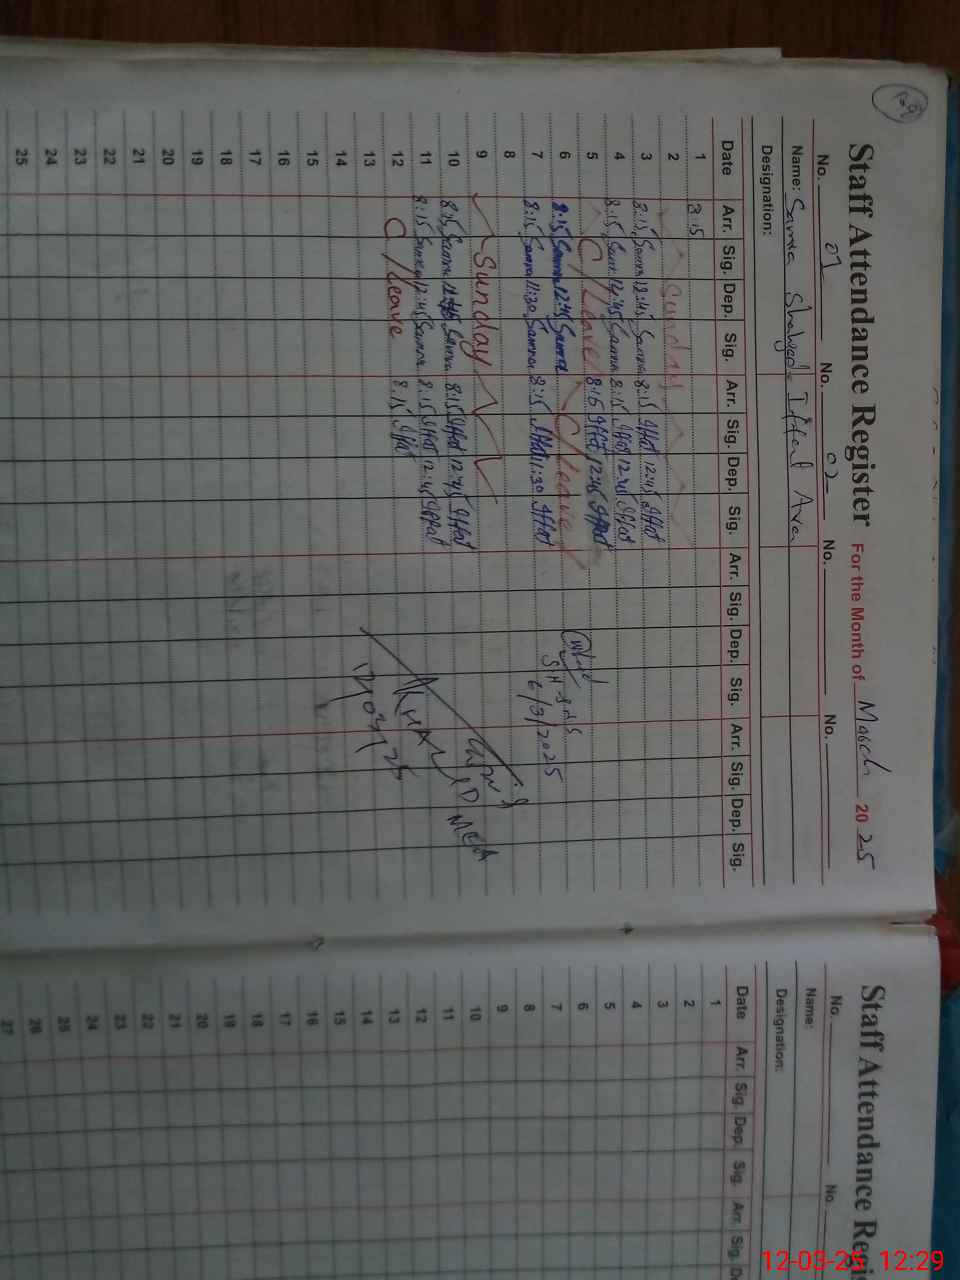 Staff Attendance Register For the Month of March 2025
No. 01 No. 02 No. No.
Name: Samra Shahzad Iffat
Designation:
Date Arr. Sig. Dep. Sig. Arr. Sig. Dep. Sig. Arr. Sig. Dep. Sig. Arr. Sig. Dep. Sig.
1 8:15
2 Sunday
3 8:15 Samra 12:45 Samra 8:15 Iffat 12:45 Iffat
4 8:15 Samra 12:45 Samra 8:15 Iffat 12:45 Iffat
5 C/Leave 8:15 Iffat 12:45 Iffat
6 8:15 Samra 12:45 Samra C/Leave
7 8:15 Samra 11:30 Samra 8:15 Iffat 11:30 Iffat
6/3/2025
8
9 Sunday
10 8:15 Samra 12:45 Samra 8:15 Iffat 12:45 Iffat
11 8:15 Samra 12:45 Samra 8:15 Iffat 12:45 Iffat
12 C/Leave 8:15 Iffat
MEA
12/03/25
13
14
15
16
17
18
19
20
21
22
23
24
25
Staff Attendance Regi
No. No.
Name:
Designation:
Date Arr. Sig. Dep. Sig. Arr. Sig. D
1
2
3
4
5
6
7
8
9
10
11
12
13
14
15
16
17
18
19
20
21
22
23
24
25
26
27
12:29